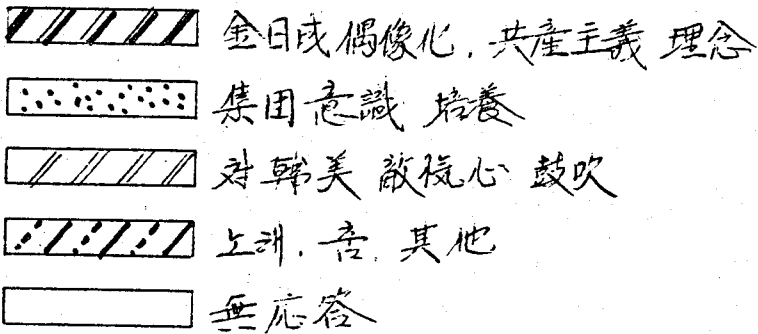 金日成 偶像化, 共産主義 理念
集団意識 培養
対韓美 敵愾心 鼓吹
노래, 춤, 其他
無応答